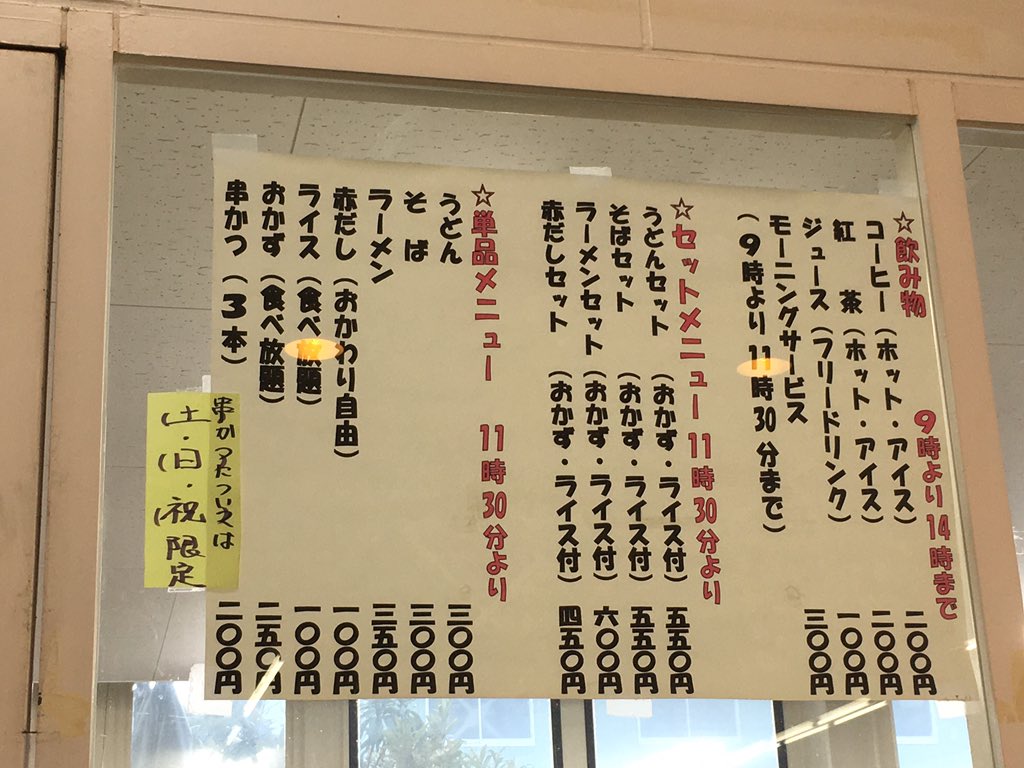 ☆飲み物 9時より14時まで
コーヒー(ホット・アイス) 二〇〇円
紅 茶(ホット・アイス) 二〇〇円
ジュース(フリードリンク) 一〇〇円
モーニングサービス 三〇〇円
(9時より11時30分まで)
☆セットメニュー 11時30分より
うどんセット (おかず・ライス付) 五五〇円
そばセット (おかず・ライス付) 五五〇円
ラーメンセット (おかず・ライス付) 六〇〇円
赤だしセット (おかず・ライス付) 四五〇円
☆単品メニュー 11時30分より
うどん 三〇〇円
そ ば 三〇〇円
ラーメン 三五〇円
赤だし(おかわり自由) 一〇〇円
ライス(食べ放題) 一〇〇円
おかず(食べ放題) 二五〇円
串かつ(3本) 二〇〇円
串かつについては
土・日・祝限定